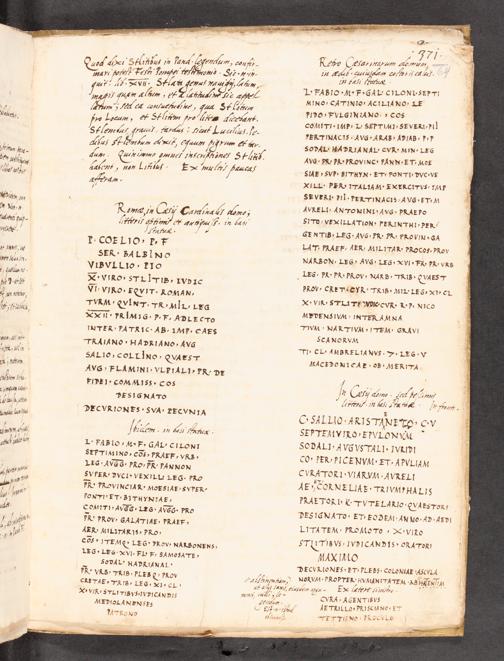 371
Quod dixi Stlitibus in Pand. legendum, confir-
mari potest Festi Pompei testimonio. Sic in-
quit: lib. XVII. Stlata genus navigij latum,
magis quam altum, et a latitudine sic appel-
latum; sed ea consuetudine, qua Stlocum
pro Locum, et Stlitem pro lite dicebant.
habent, non Litibus. Ex multis paucas
afferam.
Romæ, in Cæsij Cardinalis domo,
litteris optimis et antiquis. in basi
statuæ.
P. COELIO · P. F
SER · BALBINO
VIBULLIO · PIO
X̅ · VIRO · STLITIB · IUDIC
VI · VIRO · EQUIT · ROMAN,
TURM · QUINT · TR · MIL · LEG
XXII · PRIMIG · P · F · ADLECTO
INTER · PATRIC · AB · IMP · CAES
TRAIANO · HADRIANO · AUG
SALIO · COLLINO · QUAEST
AUG · FLAMINI · ULPIALI · PR · DE
FIDEI · COMMISS · COS
DESIGNATO
DECURIONES · SUA · PECUNIA
Ibidem. in basi statuæ.
L · FABIO · M · F · GAL · CILONI
SEPTIMINO · COS · PRAEF · URB ·
LEG · AUGG · PRO · PR · PANNON
SUPER · DUCI · VEXILL · LEG · PRO
PR · PROVINCIAR · MOESIAE · SUPER ·
PONTI · ET · BITHYNIAE ·
COMITI · AUGG · LEG · AUGG · PRO
PR · PROV · GALATIAE · PRAEF ·
AER · MILITARIS · PRO ·
COS · ITEMQ · LEG · PROV · NARBONENS ·
LEG · LEG · XVI · FL · F · SAMOSATE ·
SODAL · HADRIANAL ·
PR · URB · TRIB · PLEB · Q · PROV
CRETAE · TRIB · LEG · XI · CL ·
X · VIR · STLITIBUS · IUDICANDIS
MEDIOLANENSES
PATRONO
Retro Cæsarinorum domum,
in basi statuæ
L · FABIO · M · F · GAL · CILONI · SEPTI
MINO · CATINIO · ACILIANO · LE
PIDO · FULGINIANO · COS
COMITI · IMP · L · SEPTIMI · SEVERI · PII
PERTINACIS · AUG · ARAB · ADIAB · P · P
SODAL · HADRIANAL · CUR · MIN · LEG
AUG · PR · PR · PROVINC · PANN · ET · MOE
SIAE · SUP · BITHYN · ET · PONTI · DUC · VE
XILL · PER · ITALIAM · EXERCITUS · IMP
SEVERI · PII · PERTINACIS · AUG · ET · M
AURELI · ANTONINI · AUG · PRAEPO
SITO · VEXILLATION · PERINTHI · PER ·
GENTIB · LEG · AUG · PR · PR · PROVIN · GA
LAT · PRAEF · AER · MILITAR · PROCOS · PROV
NARBON · LEG · AUG · LEG · XVI · F · PR · URB
LEG · PR · PR · PROV · NARB · TRIB · QUAEST
PROV · CRET · CYR · TRIB · MIL · LEG · XI · CL
X · VIR · STLIT IUDIC · CUR · R · P · NICO
MEDENSIUM · INTERAMNA
TIUM · NARTIUM · ITEM · GRAVI
SCANORUM
TI · CL · AMBRELIANUS · 7 · LEG · V
MACEDONICAE · OB · MERITA ·
In Cæsij domo ·
C · SALLIO · ARISTAENETO · C · V
SEPTEMVIRO · EPULONUM
SODALI · AUGUSTALI · IURIDI
CO · PER · PICENUM · ET · APULIAM
CURATORI · VIARUM · AURELI
AE · CORNELIAE · TRIUMPHALIS
PRAETORI · K · TUTELARIO · QUAESTORI
DESIGNATO · ET · EODEM · ANNO · AD · AEDI
LITATEM · PROMOTO · X · VIRO
STLITIBUS · IUDICANDIS · ORATORI
MAXIMO
DECURIONES · ET · PLEBS · COLONIAE · ASCULA
NORUM · PROPTER · HUMANITATEM · ABSTINENTIAM
Ex latere sinistro
CURA · AGENTIBUS
AETRILLO · PRISCINO · ET
TETTIENO · PROCULO